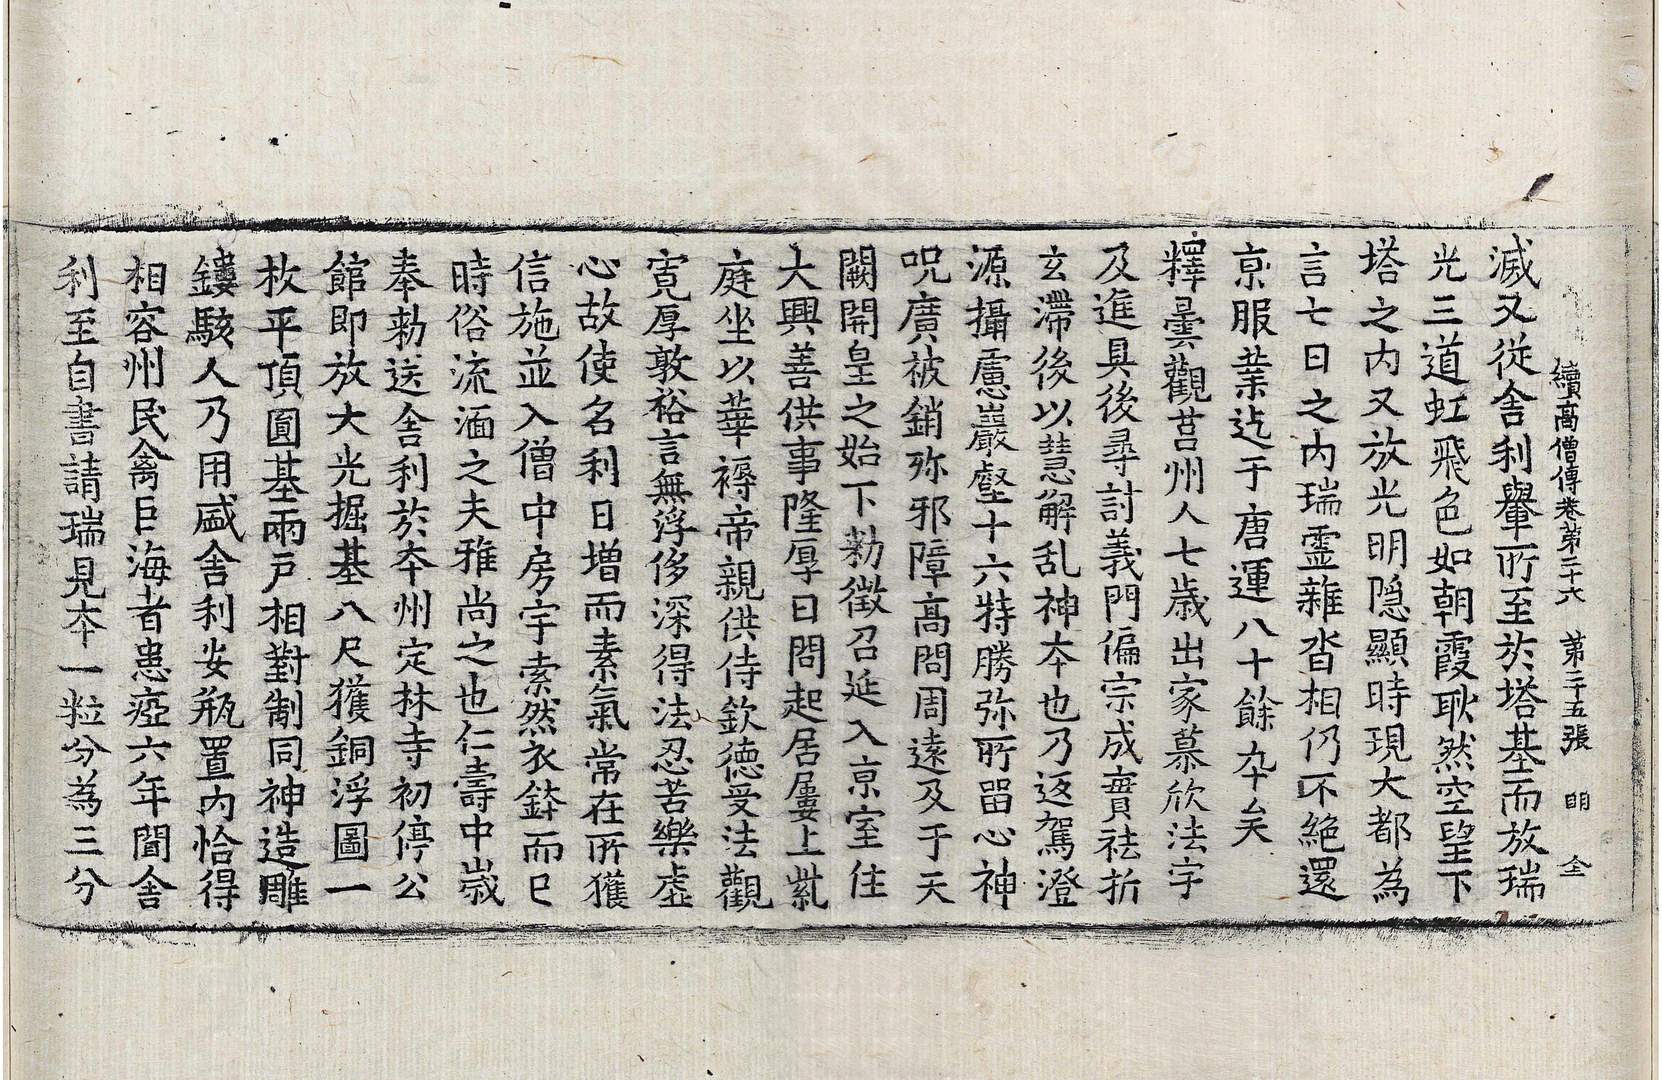 續高僧傳卷第二十六 第二十五張 明 全
滅又從舍利轝所至於塔基而放瑞
光三道虹飛色如朝霞耿然空望下
塔之內又放光明隐顯時現大都為
言七日之內瑞霊雜沓相仍不絕還
京服業迄于唐運八十餘卆矣
釋曇觀莒州人七歲出家慕欣法字
及進具後尋討義門偏宗成實祛折
玄滯後以慧解乱神夲也乃返駕澄
源攝慮巖壑十六特勝弥所留心神
呪廣被銷弥邪障高問周遠及于天
闕開皇之始下勑徵召延入京室住
大興善供事隆厚日問起居屢上紫
庭坐以華褥帝親供侍欽德受法觀
寬厚敦裕言無浮侈深得法忍苦樂虛
心故使名利日增而素氣常在所獲
信施並入僧中房宇索然衣鉢而已
時俗流湎之夫雅尚之也仁壽中歲
奉勑送舍利於夲州定林寺初停公
館即放大光掘基八尺獲銅浮圖一
枚平頂圓基兩戸相對制同神造雕
鏤駭人乃用盛舍利安瓶置內恰得
相容州民禽巨海者患瘂六年聞舍
利至自書請瑞見夲一粒分為三分